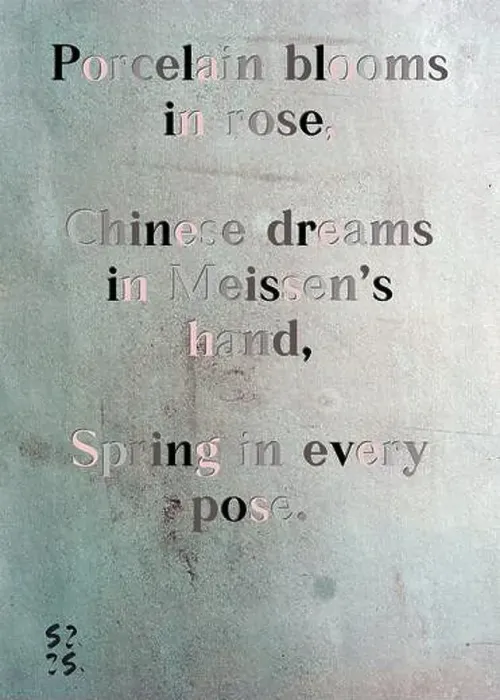 Porcelain blooms
in rose,
Chinese dreams
in Meissen's
hand,
Spring in every
pose.